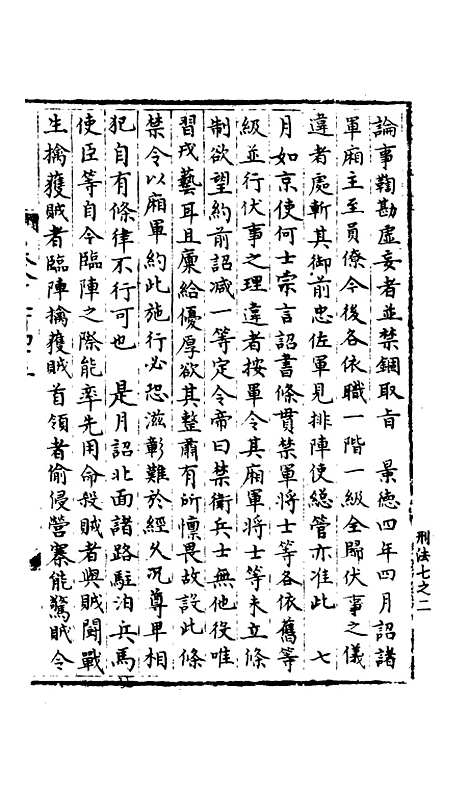 論事鞫勘虛妄者並禁錮取旨　景德四年四月詔諸
軍廂主至員僚今後各依職一階一級全歸伏事之儀
違者處斬其御前忠佐軍見排陣使總管亦准此　七
月如京使何士宗言詔書條貫禁軍將士等各依舊等
級並行伏事之理違者按軍令其廂軍將士等未立條
制欲望約前詔减一等定令帝曰禁衛兵士無他役唯
習戎藝耳且廩給優厚欲其整肅有所懍畏故設此條
禁令以廂軍約此施行必恐滋彰難於經久况尊卑相
犯自有條律不行可也　是月詔北面諸路駐泊兵馬
使臣等自今臨陣之際能率先用命殺賊者與賊鬪戰
生擒獲賊者臨陣擒獲賊首領者偷侵營寨能驚賊令
刑法七之二